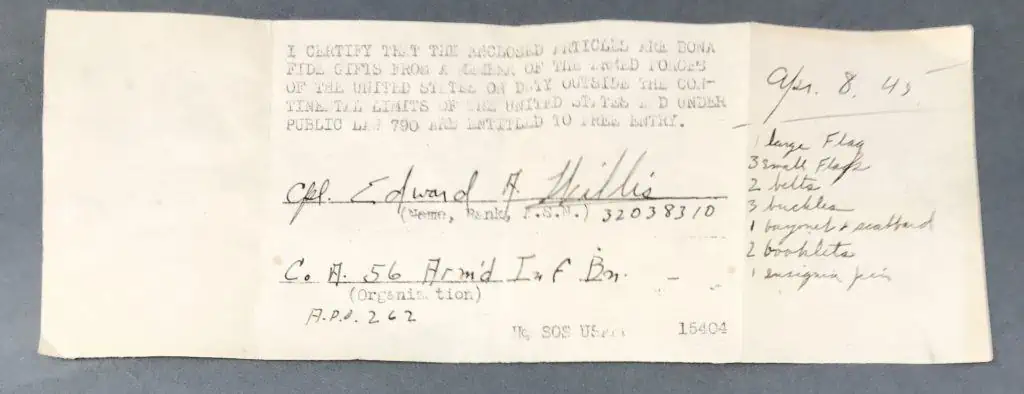 I CERTIFY THAT THE ENCLOSED ARTICLES ARE BONA
FIDE GIFTS FROM A MEMBER OF THE ARMED FORCES
OF THE UNITED STATES ON DUTY OUTSIDE THE CON-
TINENTAL LIMITS OF THE UNITED STATES AND UNDER
PUBLIC LAW 790 ARE ENTITLED TO FREE ENTRY.
Cpl. Edward A. Willis
(Name, Rank, A.S.N.) 32038310
Co. A. 56 Arm'd Inf Bn.
(Organization)
A.P.O. 262
Hq, SOS 15404
Apr. 8, 45
1 large Flag
3 small Flags
2 belts
3 buckles
1 bayonet + scabbard
2 booklets
1 insignia pin